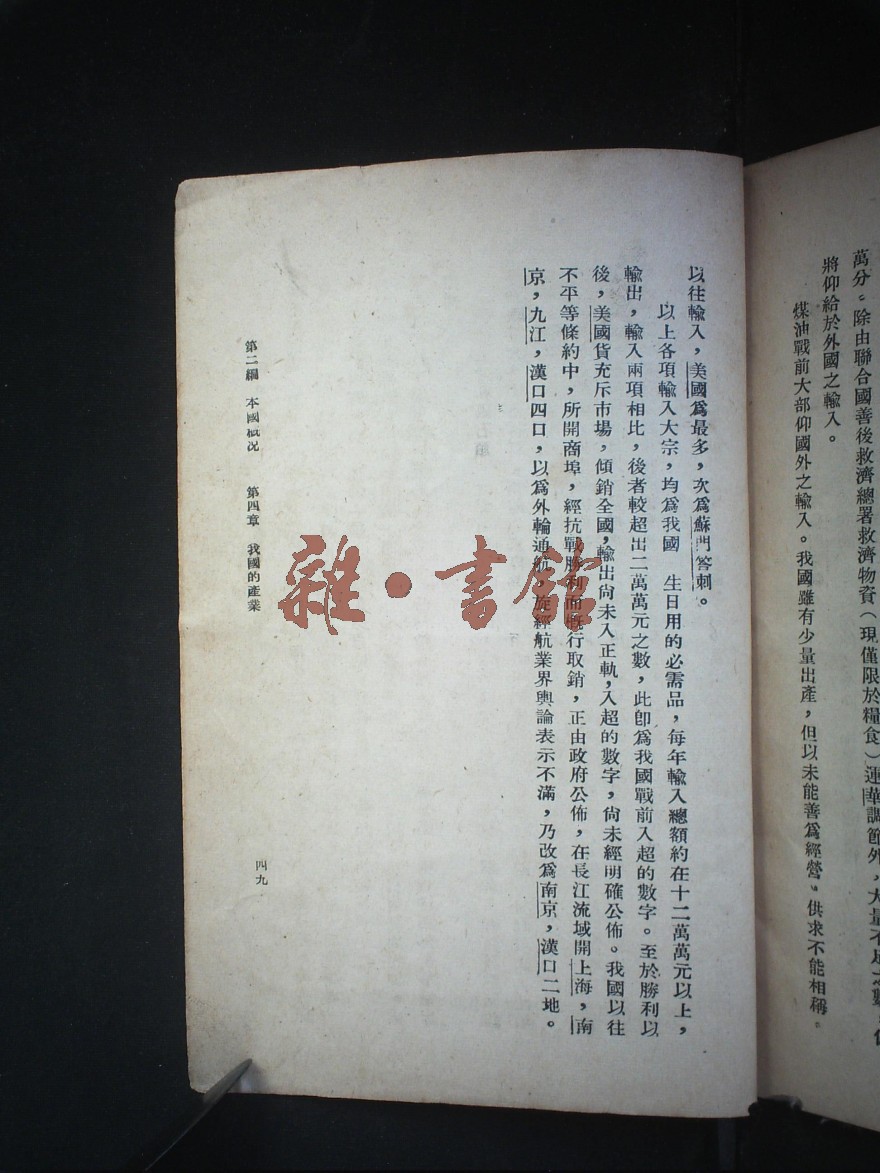 萬分。除由聯合國善後救濟總署救濟物資(現僅限於糧食)運華調節外，大量不足之數，
將仰給於外國之輸入。
煤油戰前大部仰國外之輸入。我國雖有少量出產，但以未能善爲經營。供求不能相稱。
以往輸入，美國爲最多，次爲蘇門答刺。
以上各項輸入大宗，均爲我國 生日用的必需品，每年輸入總額約在十二萬萬元以上，
輸出，輸入兩項相比，後者較超出二萬萬元之數，此卽爲我國戰前入超的數字。至於勝利以
後，美國貨充斥市場，傾銷全國，輸出尙未入正軌，入超的數字，尙未經明確公佈。我國以往
不平等條約中，所開商埠，經抗戰勝利而行取銷，正由政府公佈，在長江流域開上海，南
京，九江，漢口四口，以爲外輪通航，旋經航業界輿論表示不滿，乃改爲南京，漢口二地。
第二編 本國概况 第四章 我國的產業
四九
雜·書館